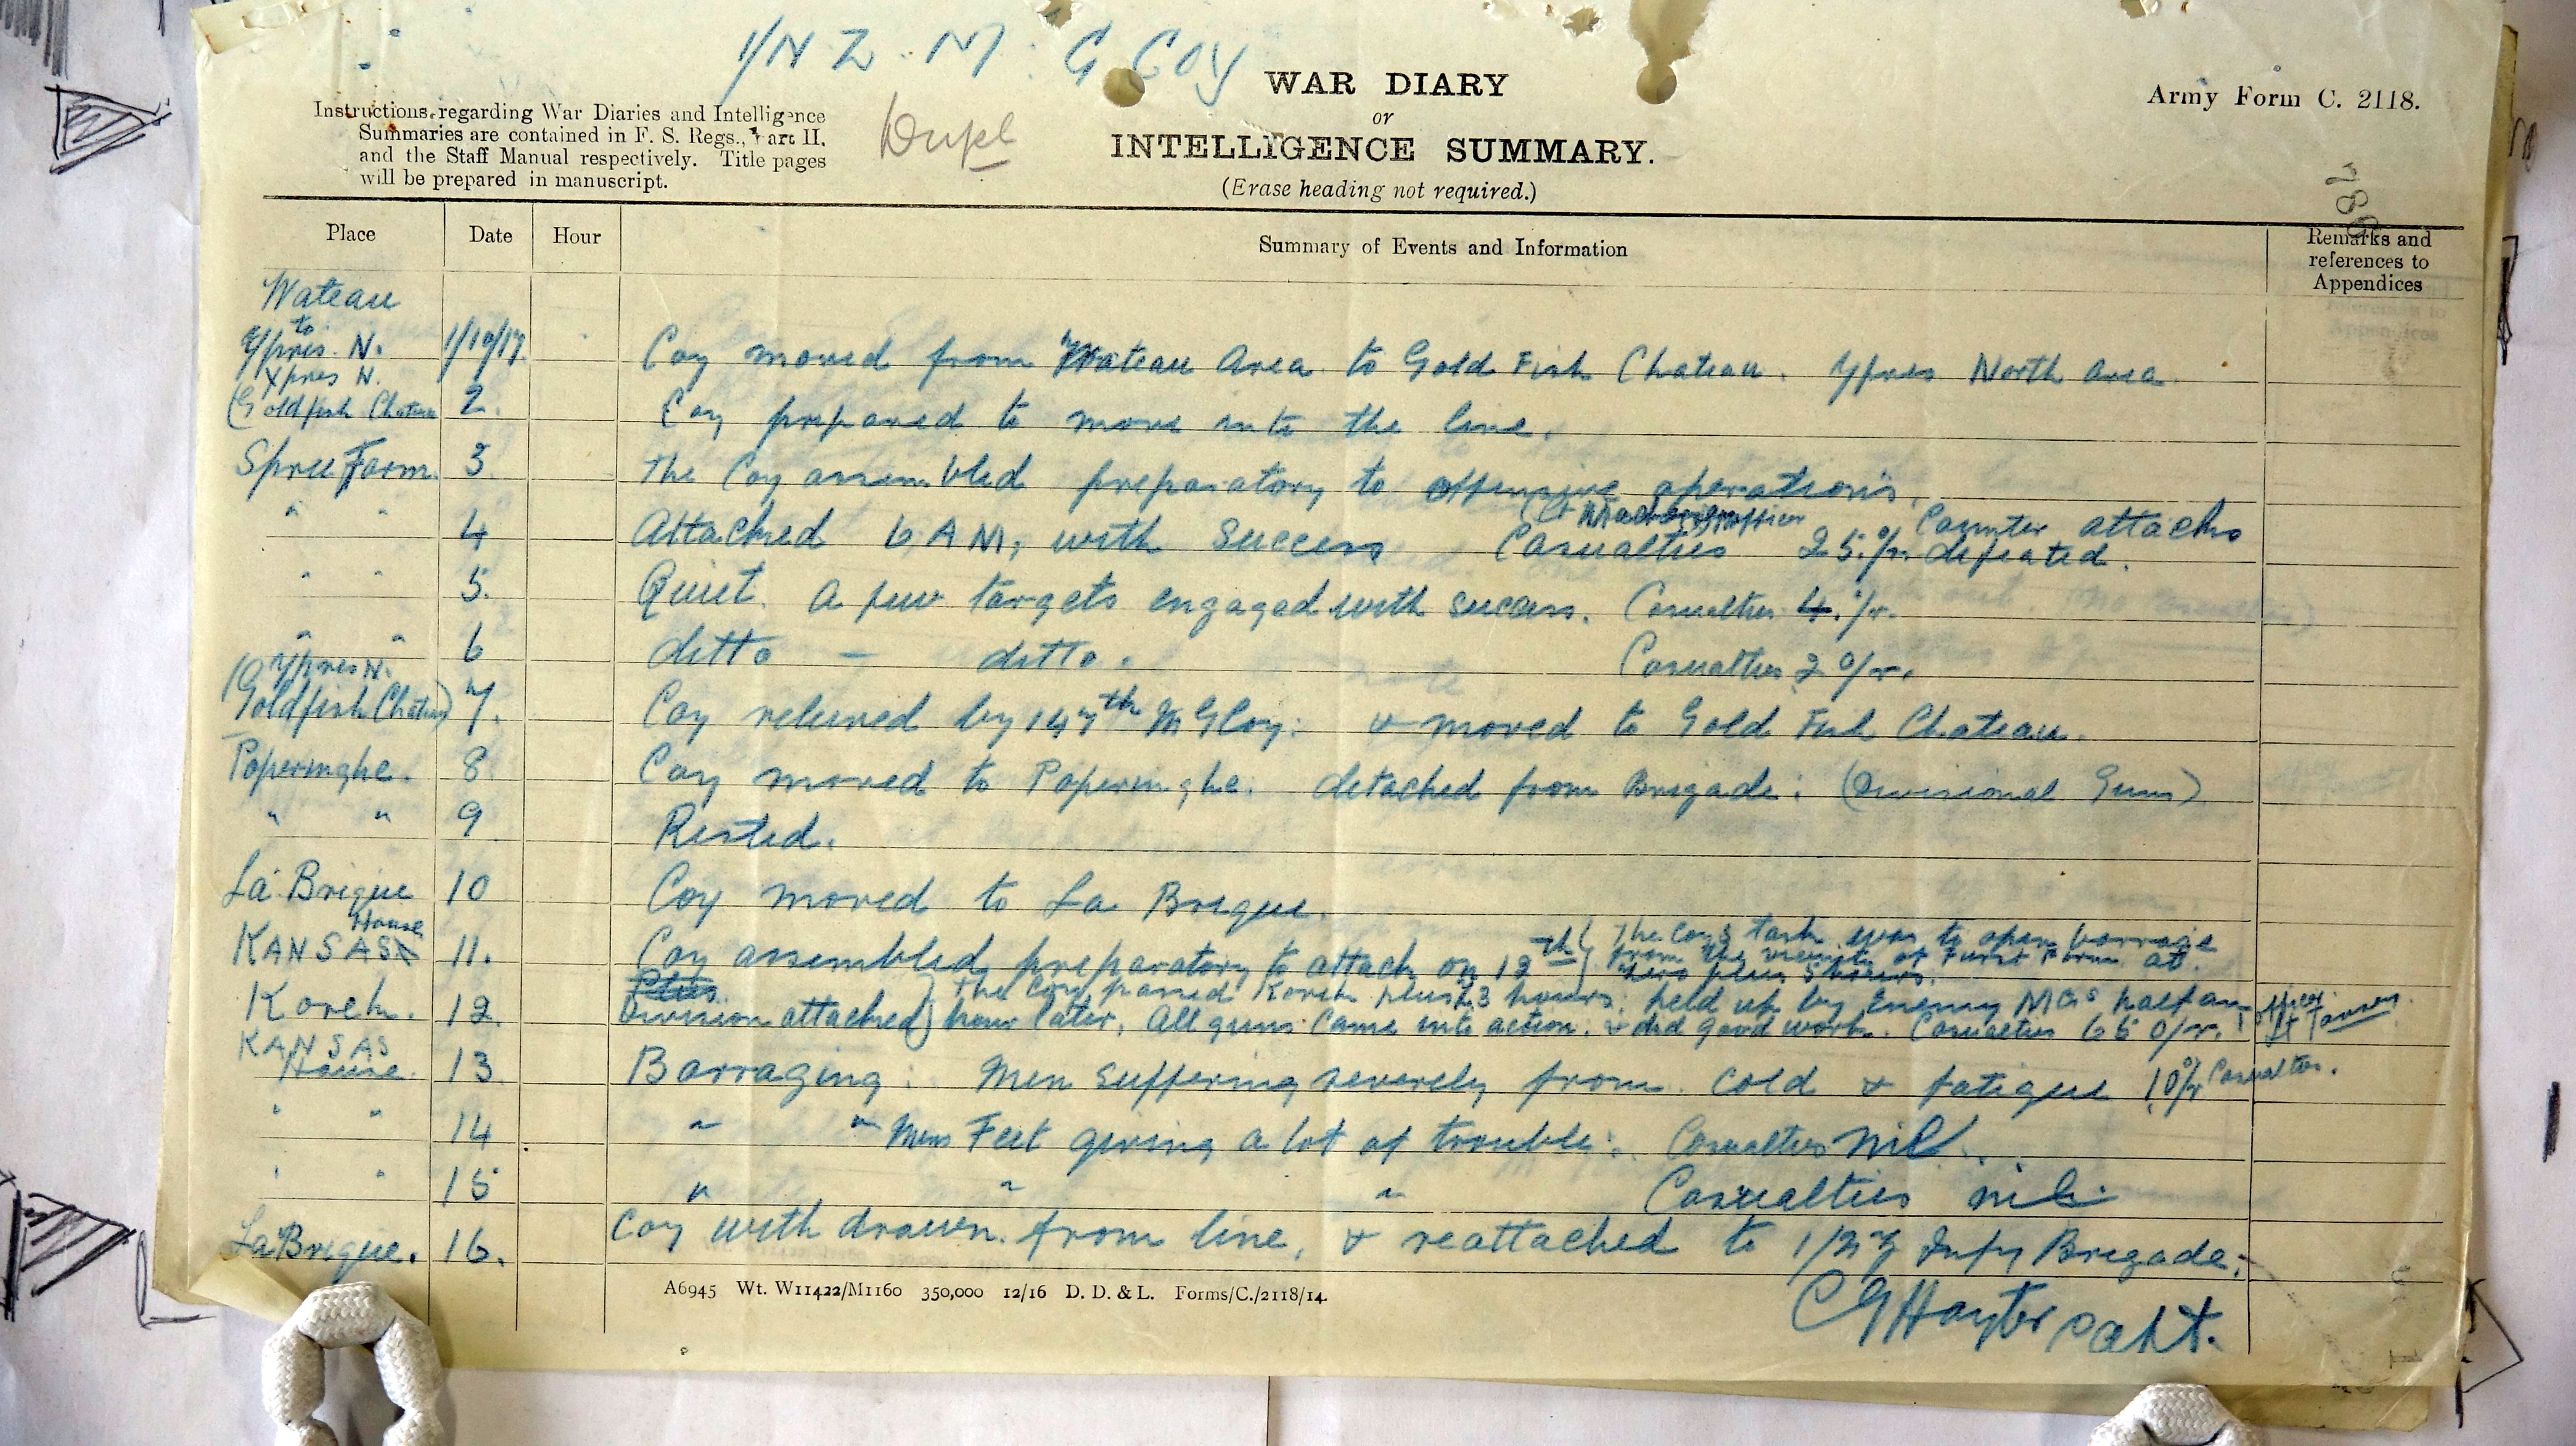 1/N Z. M. G COY
Dupl
WAR DIARY
or
INTELLIGENCE SUMMARY.
(Erase heading not required.)
Army Form C. 2118.
Instructions regarding War Diaries and Intelligence
Summaries are contained in F. S. Regs., Part II.
and the Staff Manual respectively. Title pages
will be prepared in manuscript.
Place Date Hour Summary of Events and Information Remarks and references to Appendices
Wateau
to
Ypres. N. 1/10/17. Coy moved from Wateau Area to Gold Fish Chateau. Ypres North Area.
Ypres N.
(Goldfish Chateau 2. Coy prepared to move into the line.
Spree Farm. 3. The Coy assembled preparatory to offensive operations.
" " 4 Attacked 6 AM, with Success Casualties 25 o/r. Counter attacks defeated.
" " 5. Quiet. A few targets engaged with success. Casualties 4 o/r.
" " 6 ditto — ditto. Casualties 2 o/r.
Ypres N.
(Goldfish Chateau) 7. Coy relieved by 147th M G Coy: & moved to Gold Fish Chateau.
Poperinghe. 8. Coy moved to Poperinghe. detached from Brigade: (Divisional Guns)
" " 9 Rested.
La Brique 10 Coy moved to La Brique.
KANSAS House 11. Coy assembled preparatory to attack on 12th } The Coys task was to open barrage
from the vicinity of Furst Farm at
zero plus 5 hours.
Korek. 12. Division attacked } The Coy passed Korek plus 3 hours. held up by Enemy MGs half an
hour later. All guns came into action. & did good work. Casualties 65 o/r. 1 officer
Lt
KANSAS
House. 13 Barraging. Men suffering severely from cold & fatigue 10 o/r Casualties.
" " 14 " " Mens Feet giving a lot of trouble: Casualties nil.
" " 15 " " " Casualties nil.
La Brique. 16. Coy with drawn from line, & reattached to 1/NZ Infy Brigade:
C G Hayter Capt.
A6945 Wt. W11422/M1160 350,000 12/16 D. D. & L. Forms/C./2118/14.